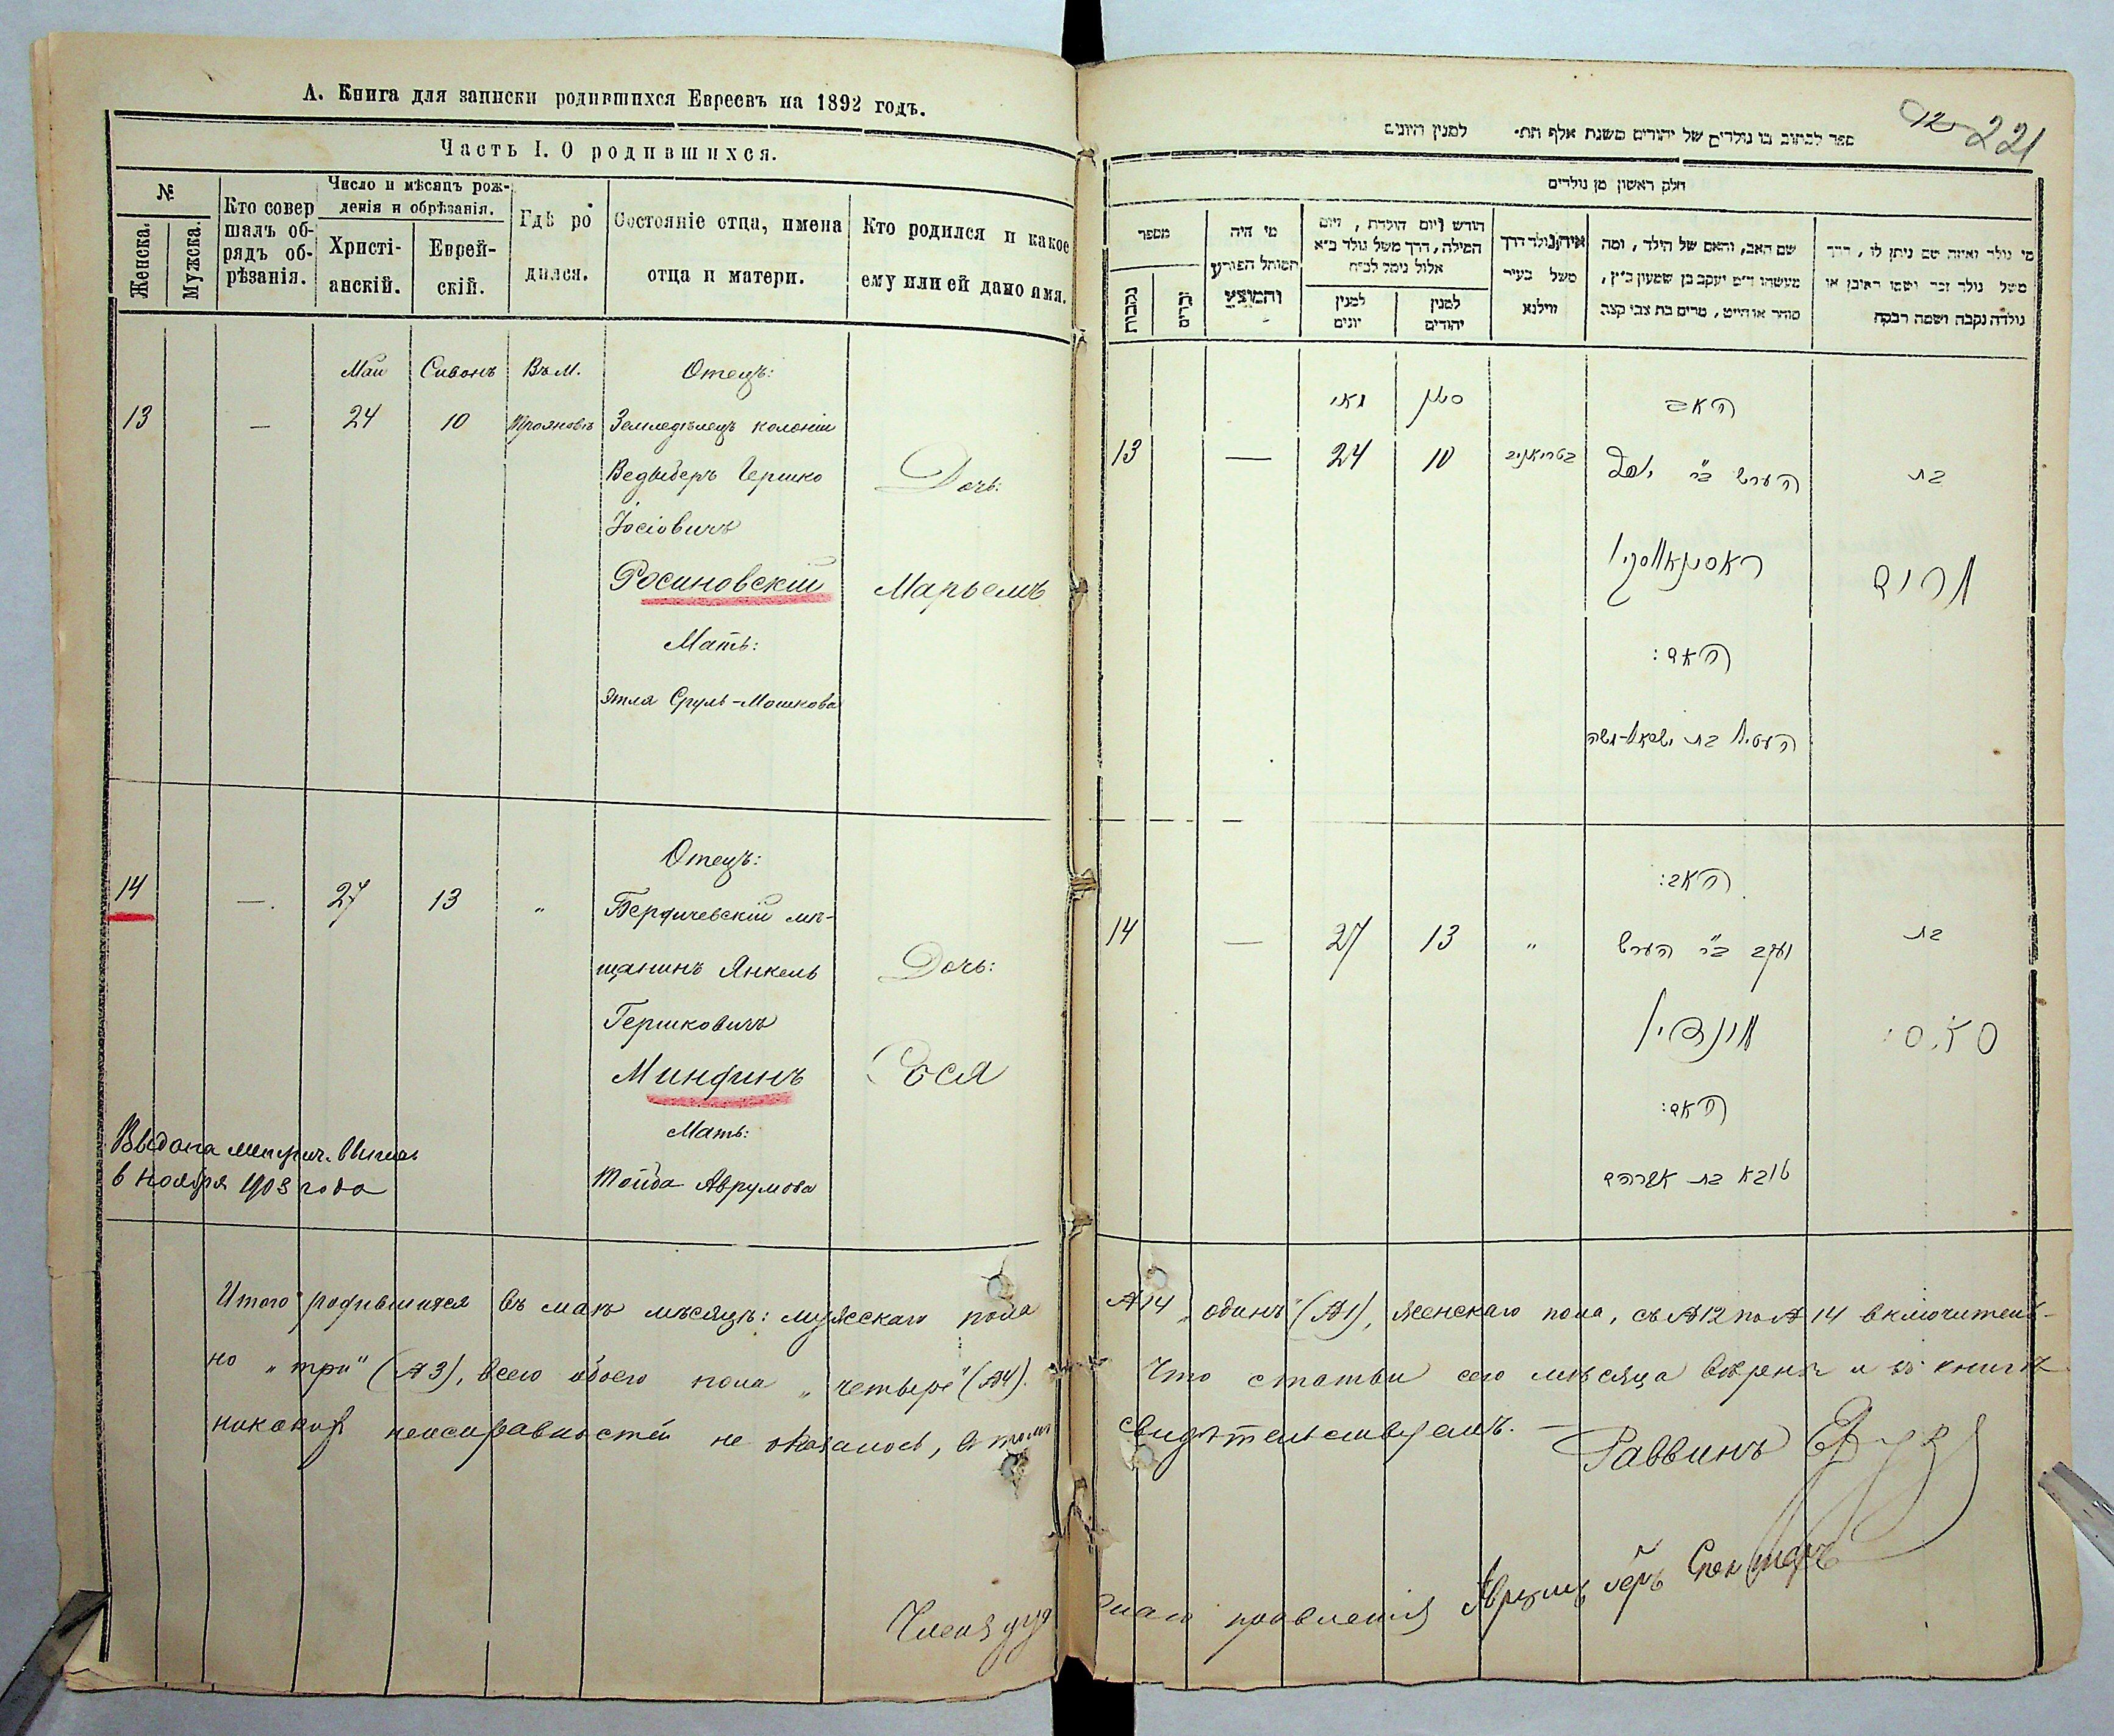 А. Книга для записки родившихся Евреевъ на 1892 годъ.
Часть I. О родившихся.
№
Женска.
Мужска.
Кто совер
шалъ об-
рядъ об-
рѣзанія.
Число и мѣсяцъ рож-
денія и обрѣзанія.
Христі-
анскій.
Еврей-
скій.
Гдѣ ро
дился.
Состояніе отца, имена
отца и матери.
Кто родился и какое
ему или ей дано имя.
Май
Сивонъ
Въ м.
Отецъ:
13
—
24
10
Трояновъ
Земледѣлецъ колоніи
Гершко
Дочь:
Іосіовичъ
Росиновскій
Марьемъ
Мать:
Этля Сруль-Мошкова
Отецъ:
14
—
27
13
"
Бердичевскій мѣ-
щанинъ Янкель
Дочь:
Гершковичъ
Миндинъ
Мать:
Тойба Аврумова
Выдана метрич. выпись
6 ноября 1903 года
ספר לכתוב בו נולדים של יהודים משנת אלף תת׳ למנין היונים
12
221
חלק ראשון מן נולדים
מספר
נקבות
זכרים
מי היה
המוהל הפורע
והמוצץ
חודש ויום הולדת, ויום
המילה, דרך משל נולד כ״א
אלול נימל לכ״ח
למנין
יונים
למנין
יהודים
איה נולד דרך
משל בעיר
ווילנא
שם האב, והאם של הילד, ומה
מעשהו ד״מ יעקב בן שמעון כ״ץ,
סוחר או חייט, מרים בת צבי קצב
מי נולד ואיזה שם ניתן לו, דרך
משל נולד זכר ושמו ראובן או
נולדה נקבה ושמה רבקה
מאי
סיון
האב
13
—
24
10
הערש ב״ר יוסף
בת
מרים
האם:
העטיל בת ישראל-משה
האב:
14
—
27
13
"
יעקב ב״ר הערש
בת
האם:
טובא בת אברהם
Итого родившихся въ маѣ мѣсяцѣ: мужскаго пола
№14 „одинъ" (№1), женскаго пола, съ №12 по № 14 включитель-
но „три" (№3), всего обоего пола „четыре" (№4).
Что статьи сего мѣсяца вѣрны и въ книгѣ
никакихъ неисправностей не оказалось, въ томъ
свидѣтельствуемъ. —
Раввинъ
Членъ духовнаго правленія Аврумъ Беръ Спекторъ